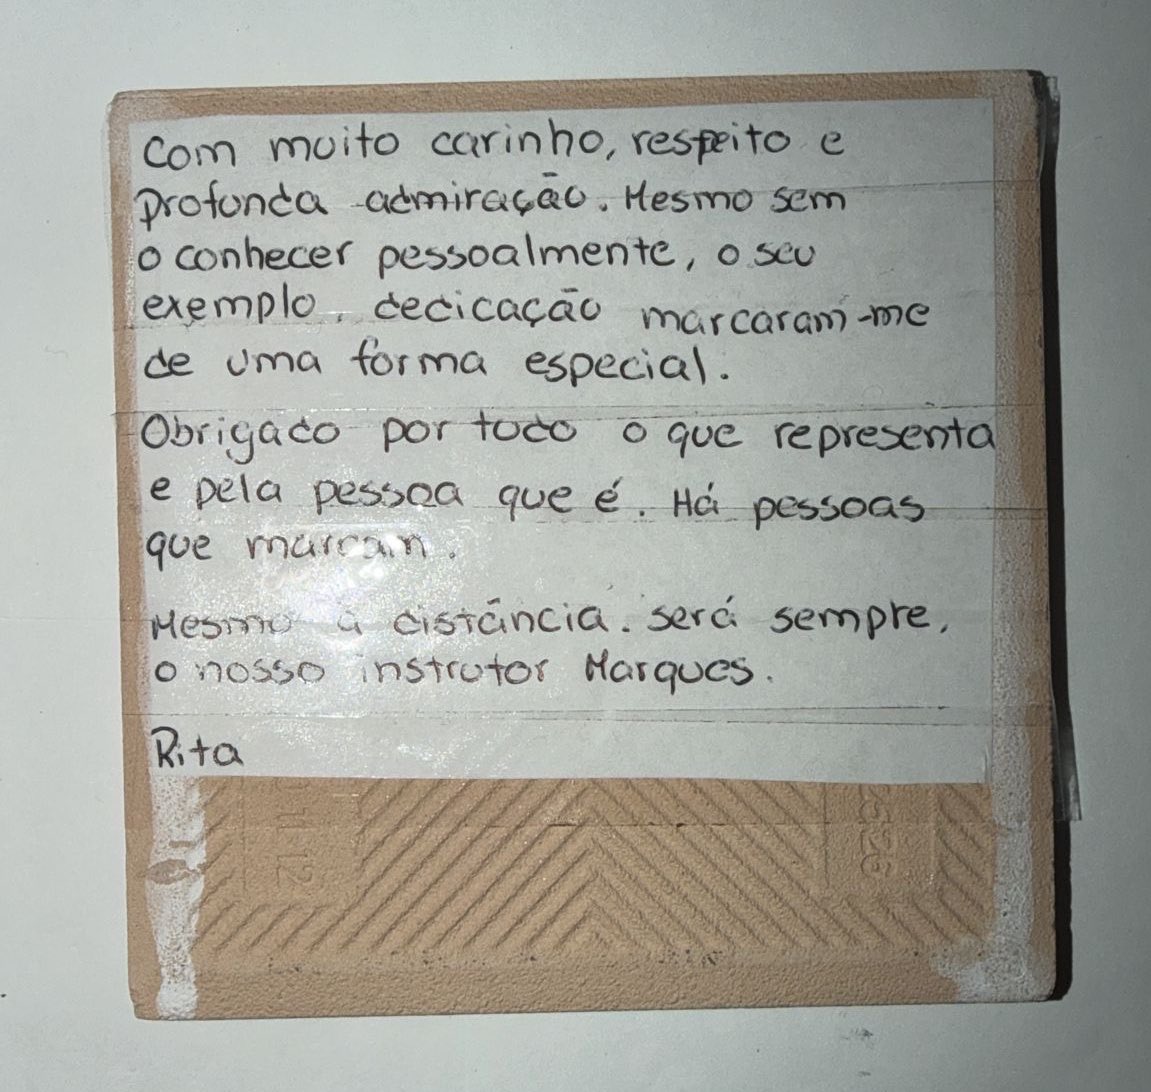 Com muito carinho, respeito e
profunda admiração. Mesmo sem
o conhecer pessoalmente, o seu
exemplo, dedicação marcaram-me
de uma forma especial.
Obrigado por todo o que representa
e pela pessoa que é. Há pessoas
que marcam.
Mesmo à distância. será sempre,
o nosso instrutor Marques.
Rita